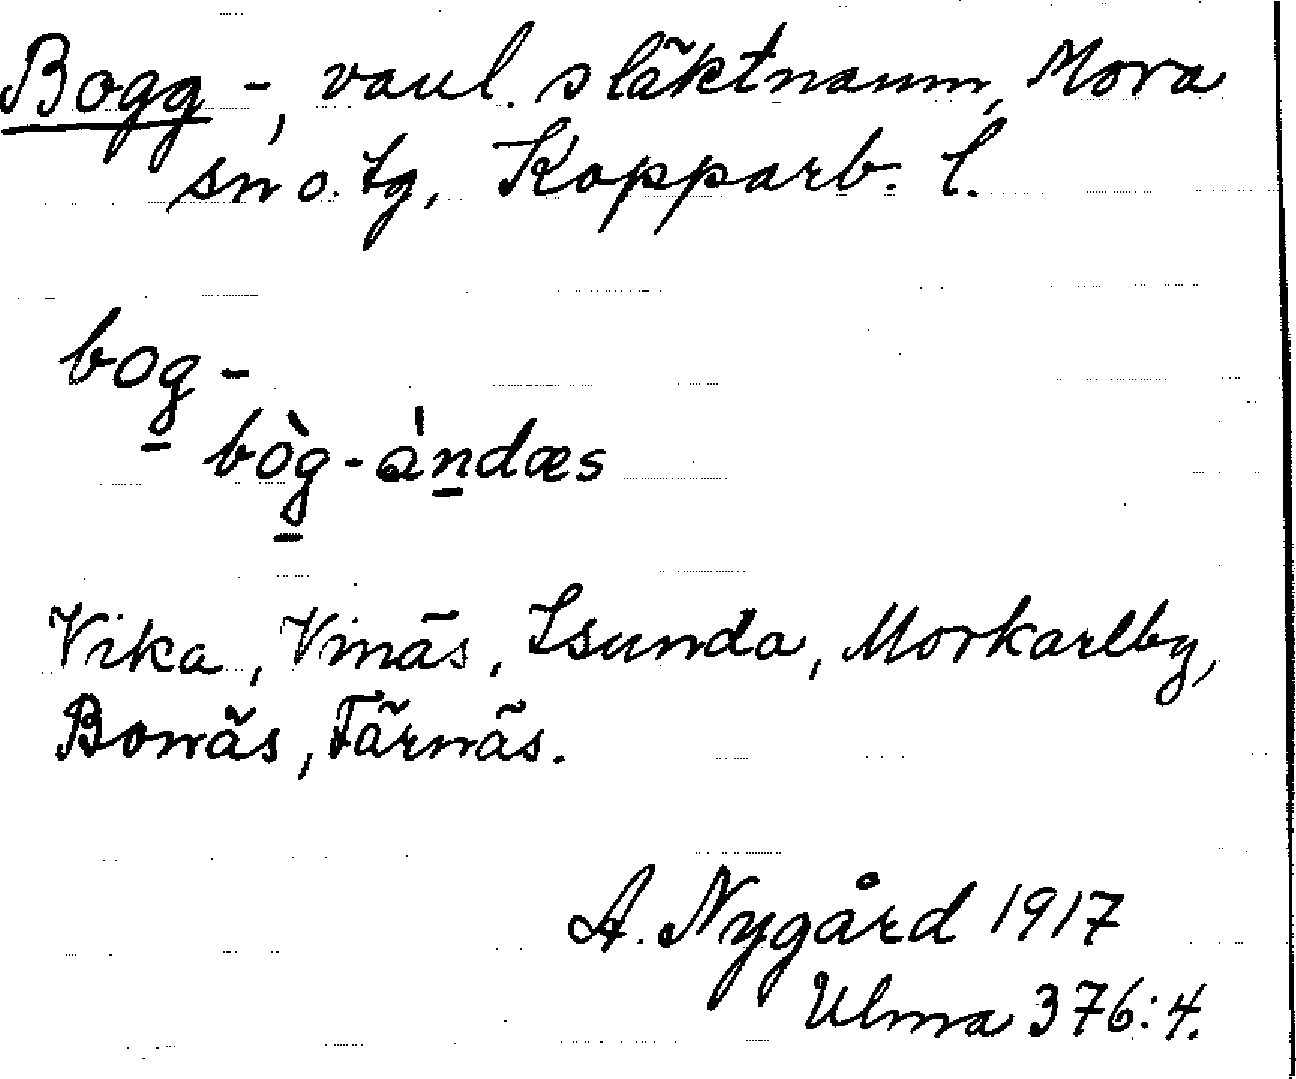 Bogg -, vanl. släktnamn, Mora
sn o. tg, Kopparb. l.
bog̲ -
bòg̲-àn̲dæs
Vika, Vinäs, Isunda, Morkarlby,
Bonäs, Färnäs.
A. Nygård 1917
Ulma 376:4.